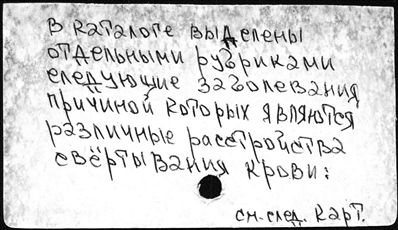 в каталоге выделены
отдельными рубриками
следующие заболевания
причиной которых являются
различные расстройства
свёртывания крови:
см. след. карт.